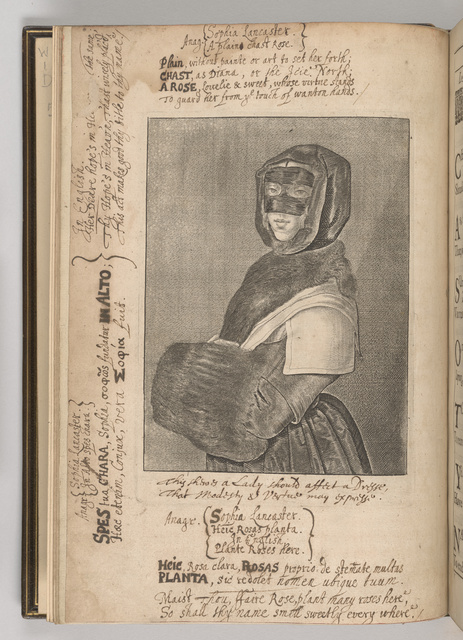 Sophia Lancaster.
Anag: A plaine chast Rose.
Plain, without painte or art to set her forth;
CHAST, as Diana, or the Icie North;
A ROSE, lovelie & sweet, whose vertue stands
To guard her from yᵉ touch of wanton hands.
Thy shews a Lady should affect a Dresse,
That Modesty & Vertue may expresse.
Anagr. Sophia Lancaster.
Heic Rosas planta.
In English
Plante Roses here.
Heic, Rosa clara, ROSAS proprio de stemate multas
PLANTA, sic redolet nomen ubique tuum.
Maist Thou, ffaire Rose, plant many roses here,
So shall thy name smell sweetly every where.
Anagr. Sophia Lancaster.
In alto spes chara.
SPES tua CHARA, Sophia, fundatur IN ALTO;
Haec etenim, Conjux, vera Σοφία fuit.
In English.
Her Deare hope's in
Thy Hope's in Heaven,
This act makes good thy title to thy name